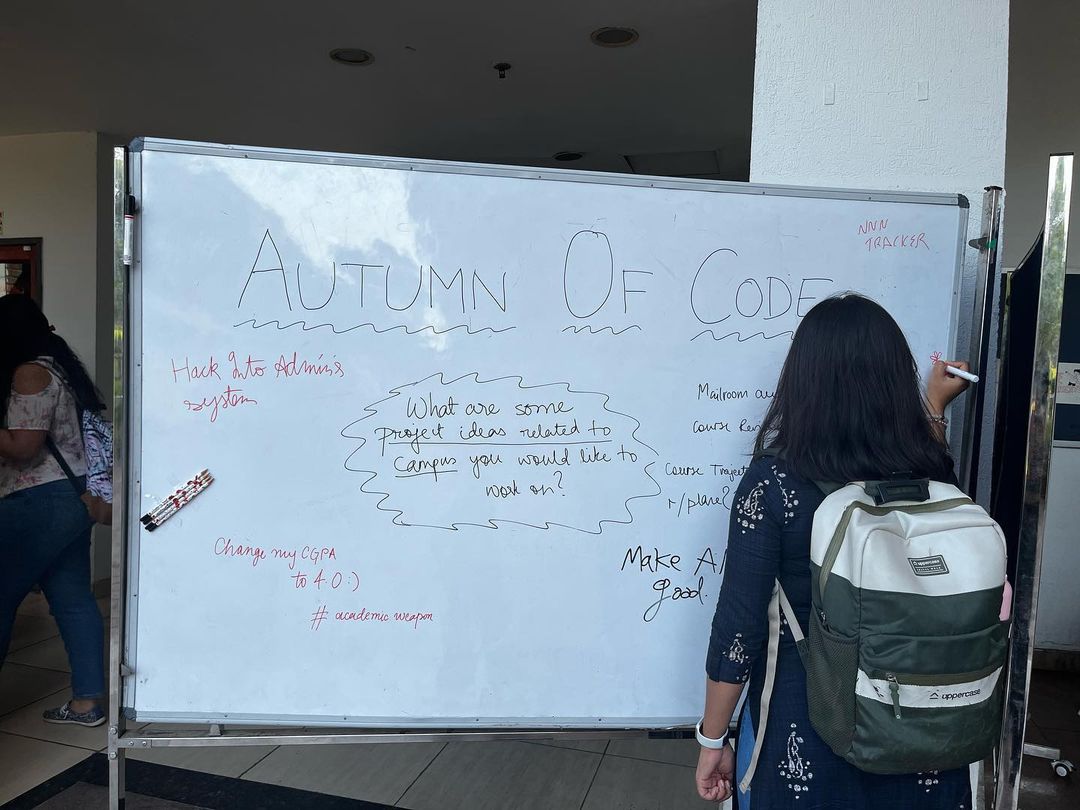 NNN
TRACKER
AUTUMN OF CODE
Hack Into Admin's
system
What are some
project ideas related to
campus you would like to
work on?
Mailroom
Course
Course
Make
good.
Change my CGPA
to 4.0 :)
# academic weapon
uppercase
uppercase